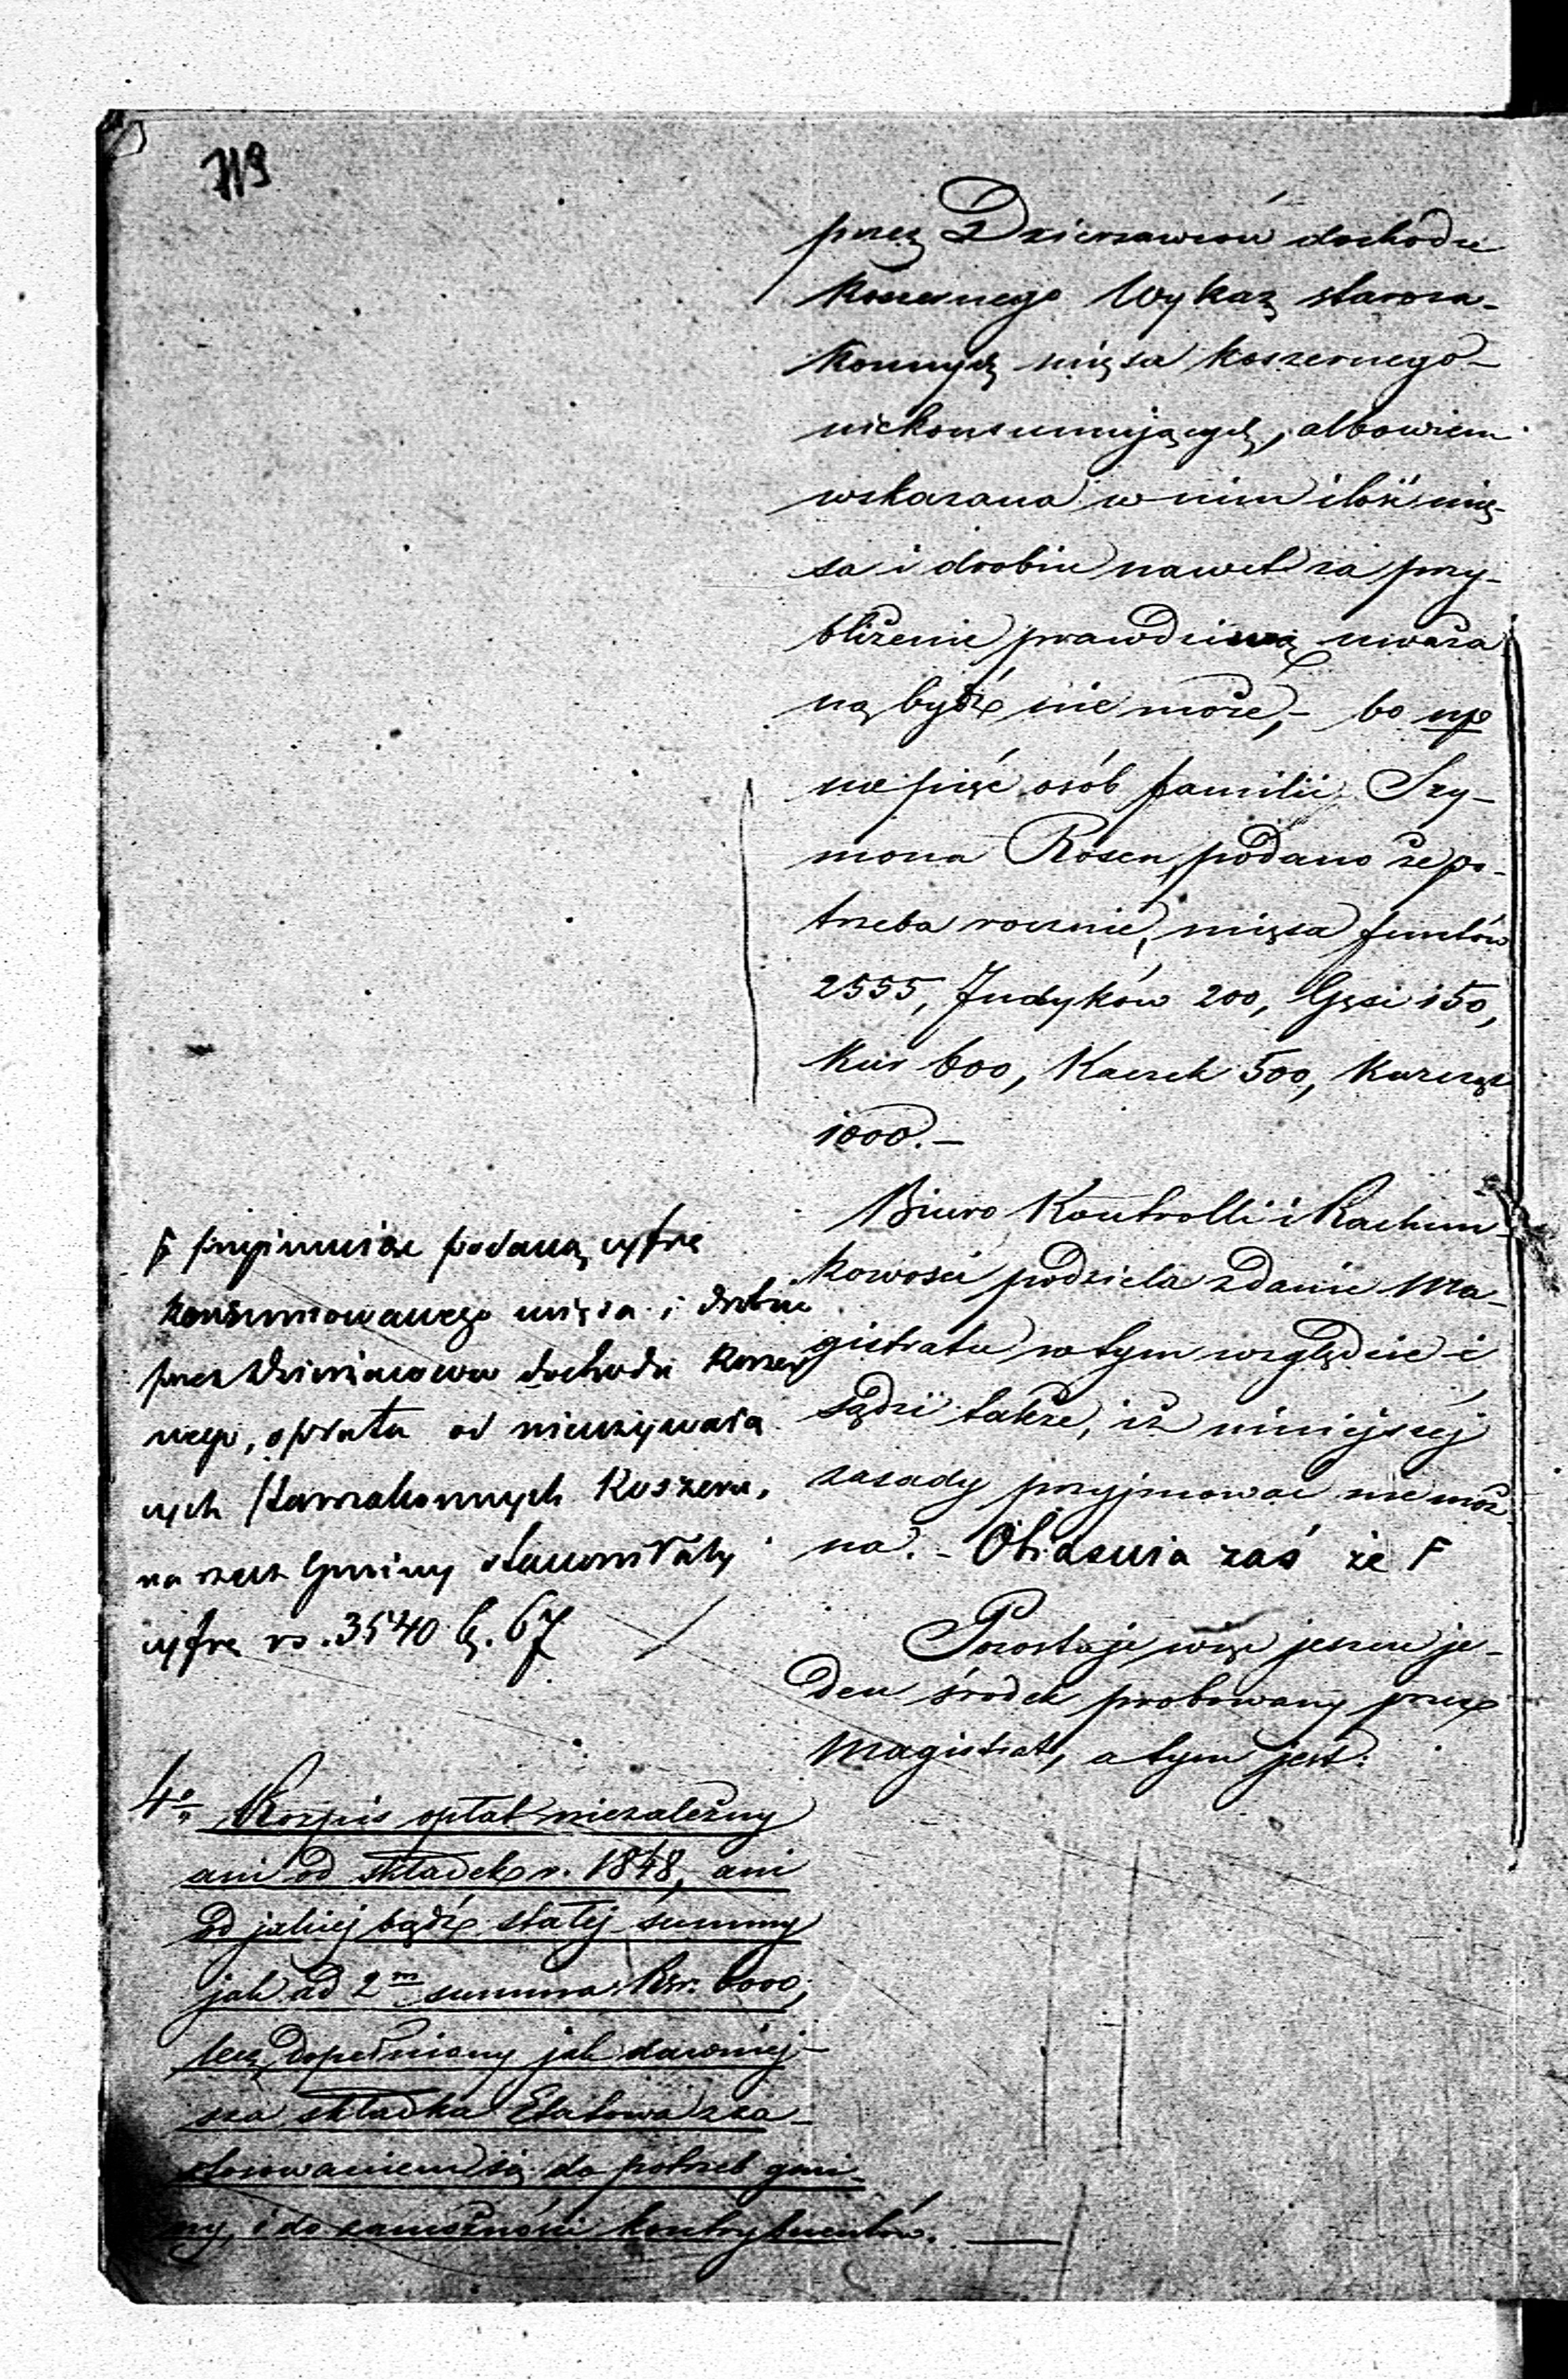 719
przez Dzierżawców dochodu
koszernego Wykaz staroza-
konnych mięsa koszernego
niekonsumujących, albowiem
wskazana w nim ilość mię-
sa i drobiu nawet za przy-
bliżenie prawdziwą uważa
ną bydź nie może,- bo np
na pięć osób familii Szy-
mona Rosen, podano że po-
trzeba rocznie, mięsa funtów
2555, Indyków 200, Gęsi 150,
Kur 600, Kaczek 500, Kurcząt
1000.-
Biuro Kontrolli i Rachun-
kowości podziela zdanie Ma-
gistratu w tym względzie i
sądzi także, iż niniejszej
zasady przyjmować nie moż-
na. - Obiasnia zaś że F
Pozostaje więc jeszcze je-
den środek probowany przez
Magistrat, a tym jest:
F przyimuiąc podaną cyfrę
konsumowanego mięsa i drobiu
przez Dzierżawców dochodu koszer
nego, opłata od nieużywaią
cych starozakonnych koszeru,
na rzecz Gminy stanowiłaby
cyfrę rs. 3540 k. 67
4o Rozpis opłat niezależny
ani od składek r. 1848, ani
od jakiej bądź stałej summy
jak ad 2m summa Rsr. 6000,
lecz dopełniony jak dawniej-
sza składka Etatowa z za-
stosowaniem się do potrzeb gmi-
ny, i do zamożności kontrybuentów.